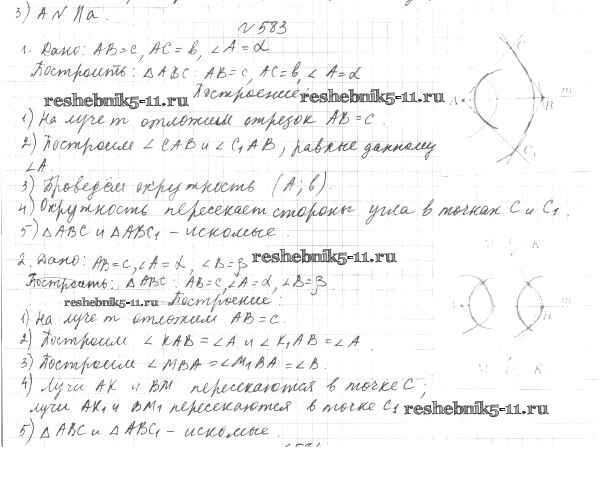 3) AN || a.
№ 583
1. Дано: AB = c, AC = b, ∠A = α
Построить: △ABC: AB = c, AC = b, ∠A = α
reshebnik5-11.ru Построение: reshebnik5-11.ru
1) На луче m отложим отрезок AB = c.
2) Построим ∠CAB и ∠C₁AB, равные данному
∠A.
3) Проведём окружность (A; b).
4) Окружность пересекает стороны угла в точках C и C₁.
5) △ABC и △ABC₁ – искомые.
A C B m C₁
2. Дано: AB = c, ∠A = α, ∠B = β reshebnik5-11.ru
Построить: △ABC: AB = c, ∠A = α, ∠B = β
reshebnik5-11.ru Построение:
1) На луче m отложим AB = c.
2) Построим ∠KAB = ∠A и ∠K₁AB = ∠A.
3) Построим ∠MBA = ∠M₁BA = ∠B.
4) Лучи AK и BM пересекаются в точке C;
лучи AK₁ и BM₁ пересекаются в точке C₁ reshebnik5-11.ru
5) △ABC и △ABC₁ – искомые.